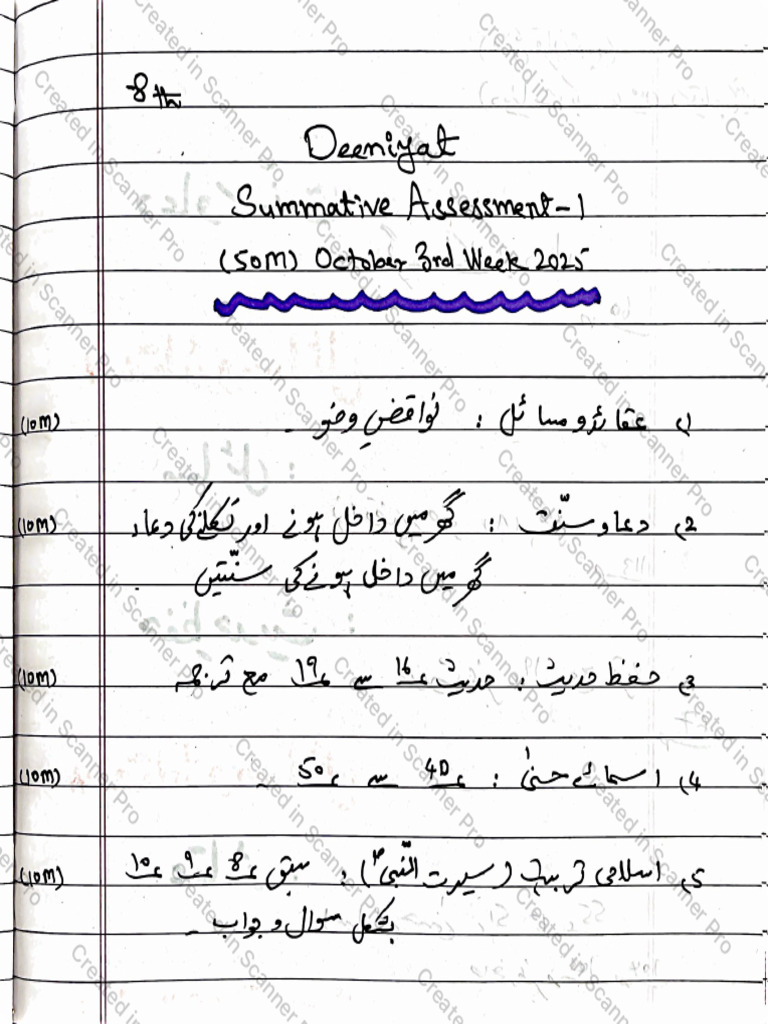 8th
Deeniyat
Summative Assessment-1
(50M) October 3rd Week 2025
1) عقائد و مسائل : نواقضِ وضو ۔ (10M)
2) دعا و سنّت : گھر میں داخل ہونے اور نکلنے کی دعاء (10M)
گھر میں داخل ہونے کی سنّتیں
3) حفظ حدیث : حدیث 16 سے 19 مع ترجمہ (10M)
4) اسمائے حسنیٰ : 40 سے 50 (10M)
5) اسلامی تربیت (سیرت النّبیؐ) : سبق 8 9 10 (10M)
بشکل سوال و جواب ۔
Created in Scanner Pro